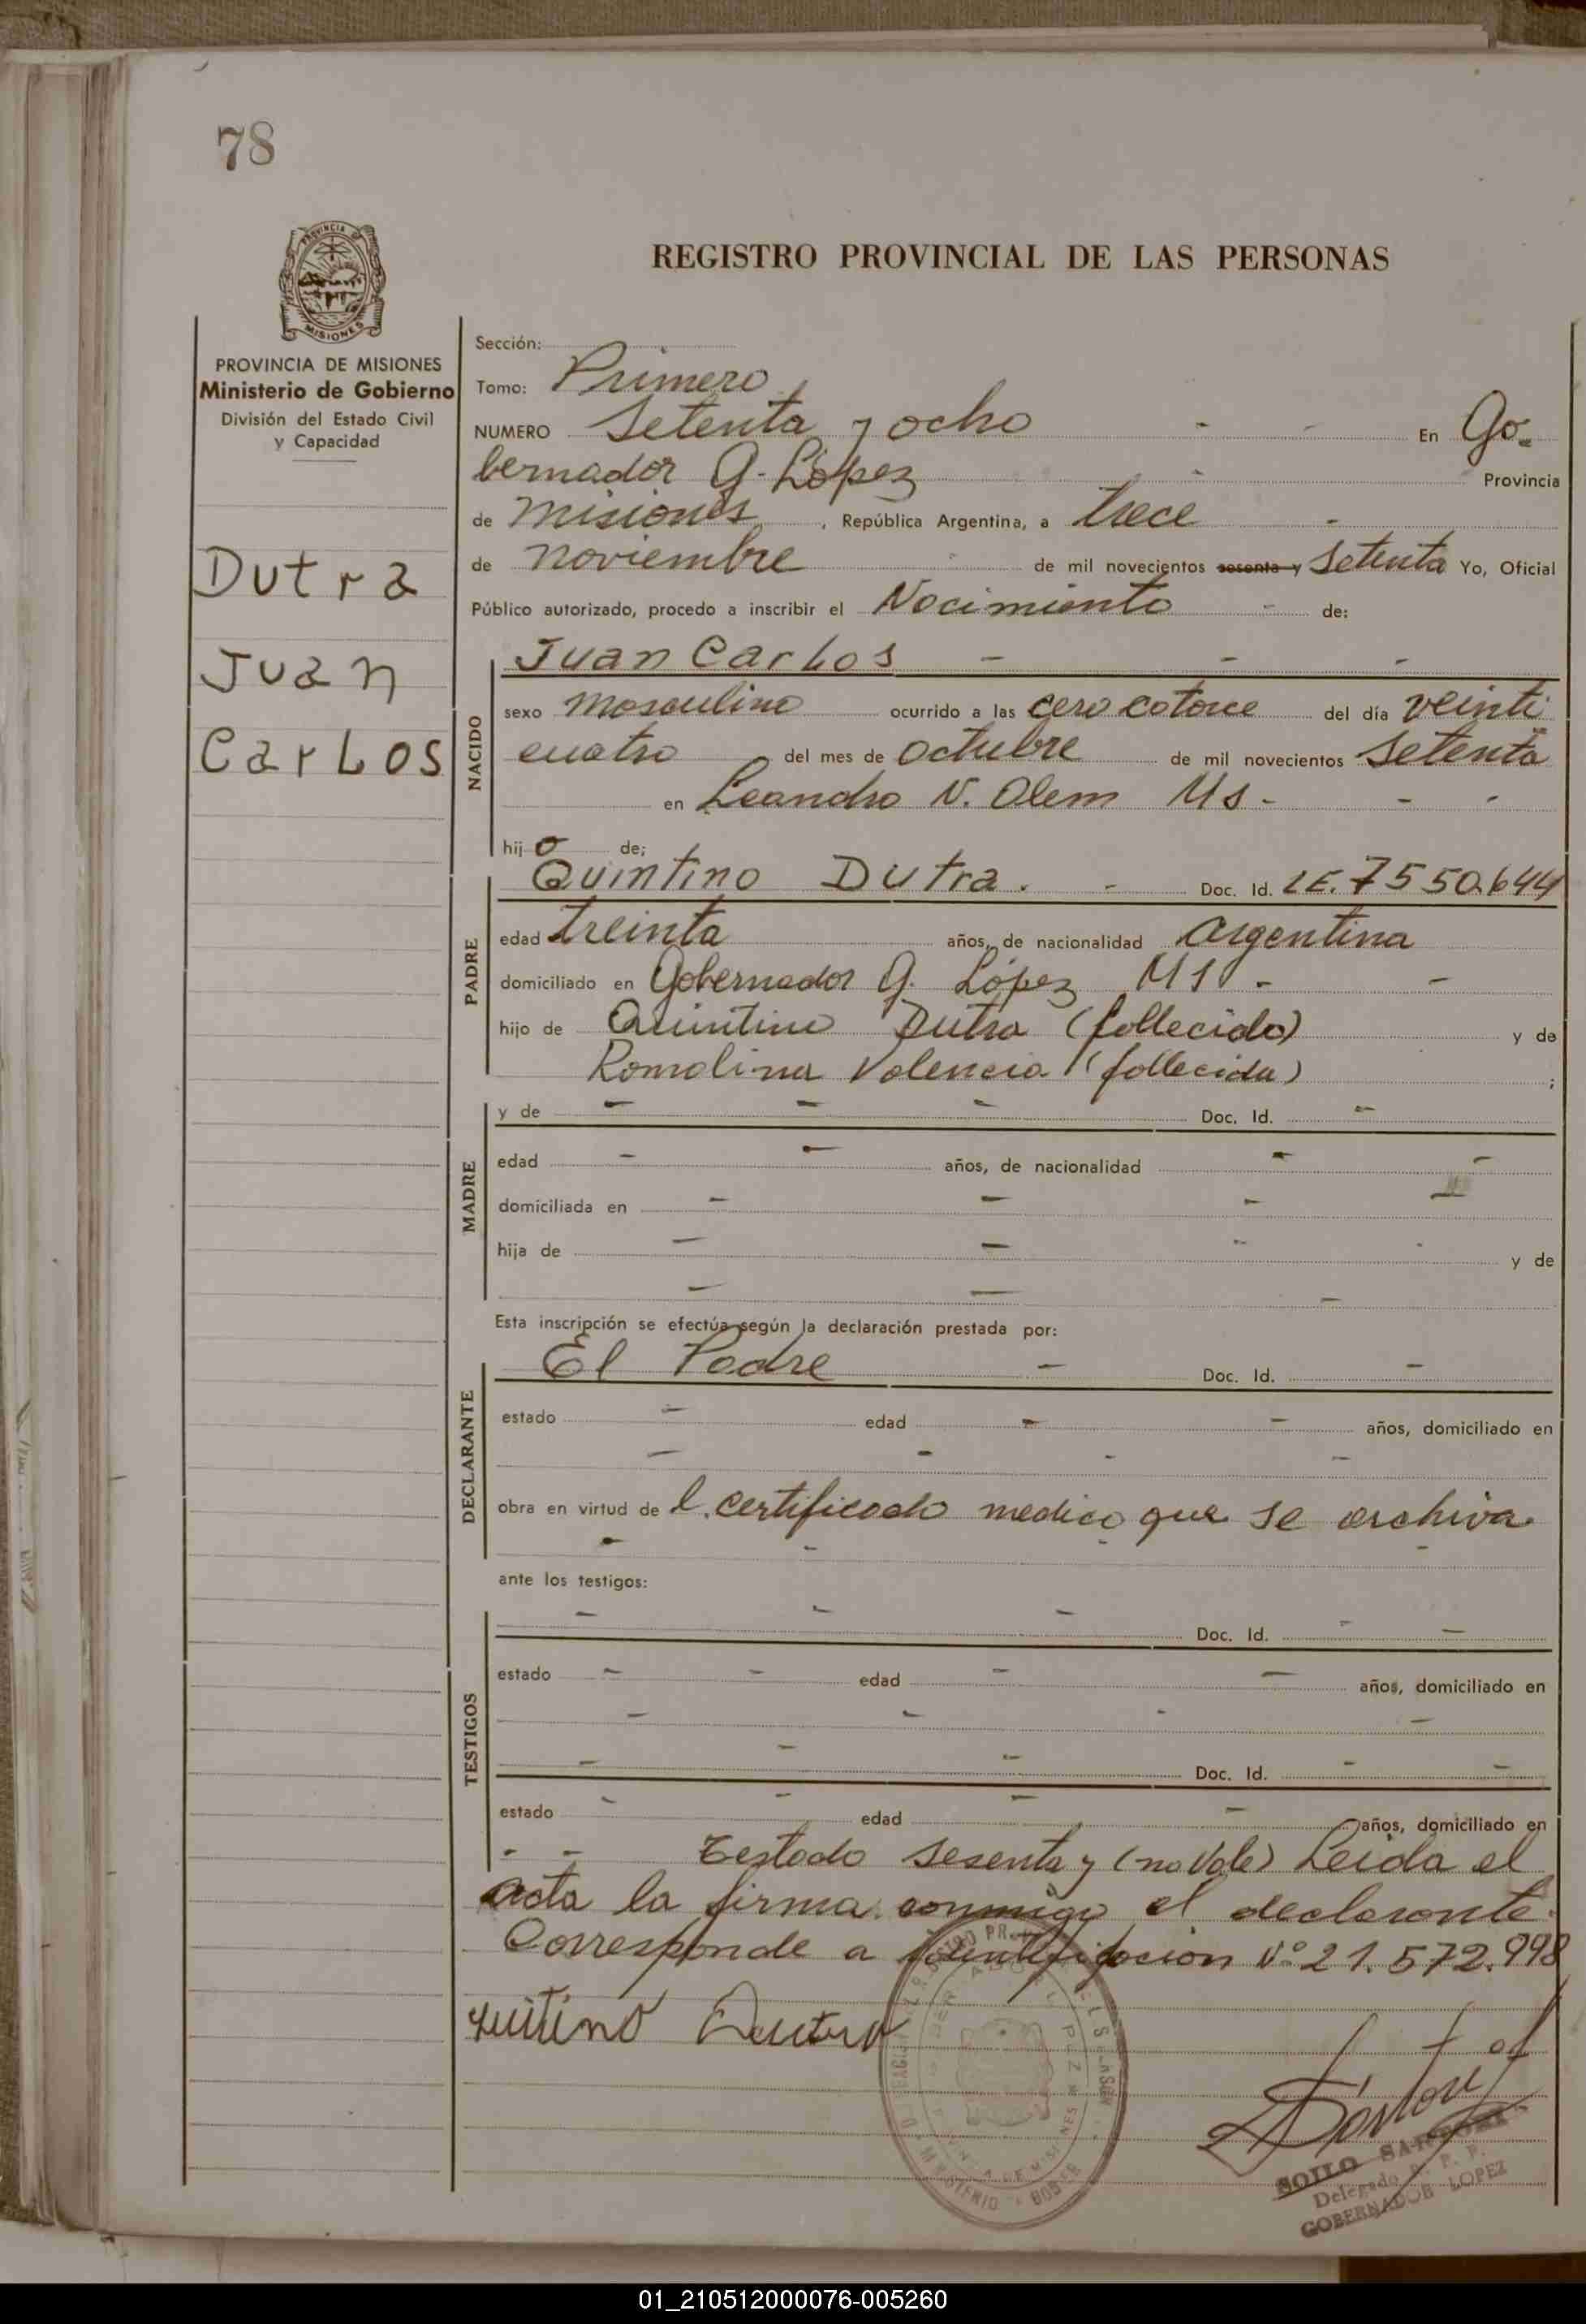 78
REGISTRO PROVINCIAL DE LAS PERSONAS
MISIONES
PROVINCIA DE MISIONES
Ministerio de Gobierno
División del Estado Civil
y Capacidad
Dutra
Juan
Carlos
Sección:
Tomo: Primero
NUMERO Setenta y ocho - - En Go-
bernador G. López - Provincia
de Misiones, República Argentina, a trece -
de noviembre de mil novecientos sesenta y Setenta Yo, Oficial
Público autorizado, procedo a inscribir el Nacimiento - de:
NACIDO
Juan Carlos - - -
sexo masculino ocurrido a las cero catorce del día veinti
cuatro del mes de octubre de mil novecientos Setenta
en Leandro N. Alem Ms - - -
hijo de;
PADRE
Quintino Dutra. - Doc. Id. LE. 7550.644
edad treinta años, de nacionalidad argentina
domiciliado en Gobernador G. López Ms - -
hijo de Quintino Dutra (fallecido) y de
Romalina Valencia (fallecida) ;
MADRE
y de - - - Doc. Id. -
edad - - años, de nacionalidad - -
domiciliada en - - - -
hija de - - - - y de
- - -
Esta inscripción se efectúa según la declaración prestada por:
DECLARANTE
El Padre - Doc. Id. -
estado - edad - - años, domiciliado en
- - - -
obra en virtud de l certificado medico que se archiva
- - - -
ante los testigos:
TESTIGOS
- - - Doc. Id. - -
estado - - edad - - años, domiciliado en
- - - -
- - - Doc. Id. - -
estado - - edad - - años, domiciliado en
- - Testado sesenta y (no vale) Leida el
acta la firma conmigo el declarante.
Corresponde a identificación Nº 21.572.998
Quitino Dutra
SOILO
Delegado R. P. P.
GOBERNADOR LOPEZ
01_210512000076-005260